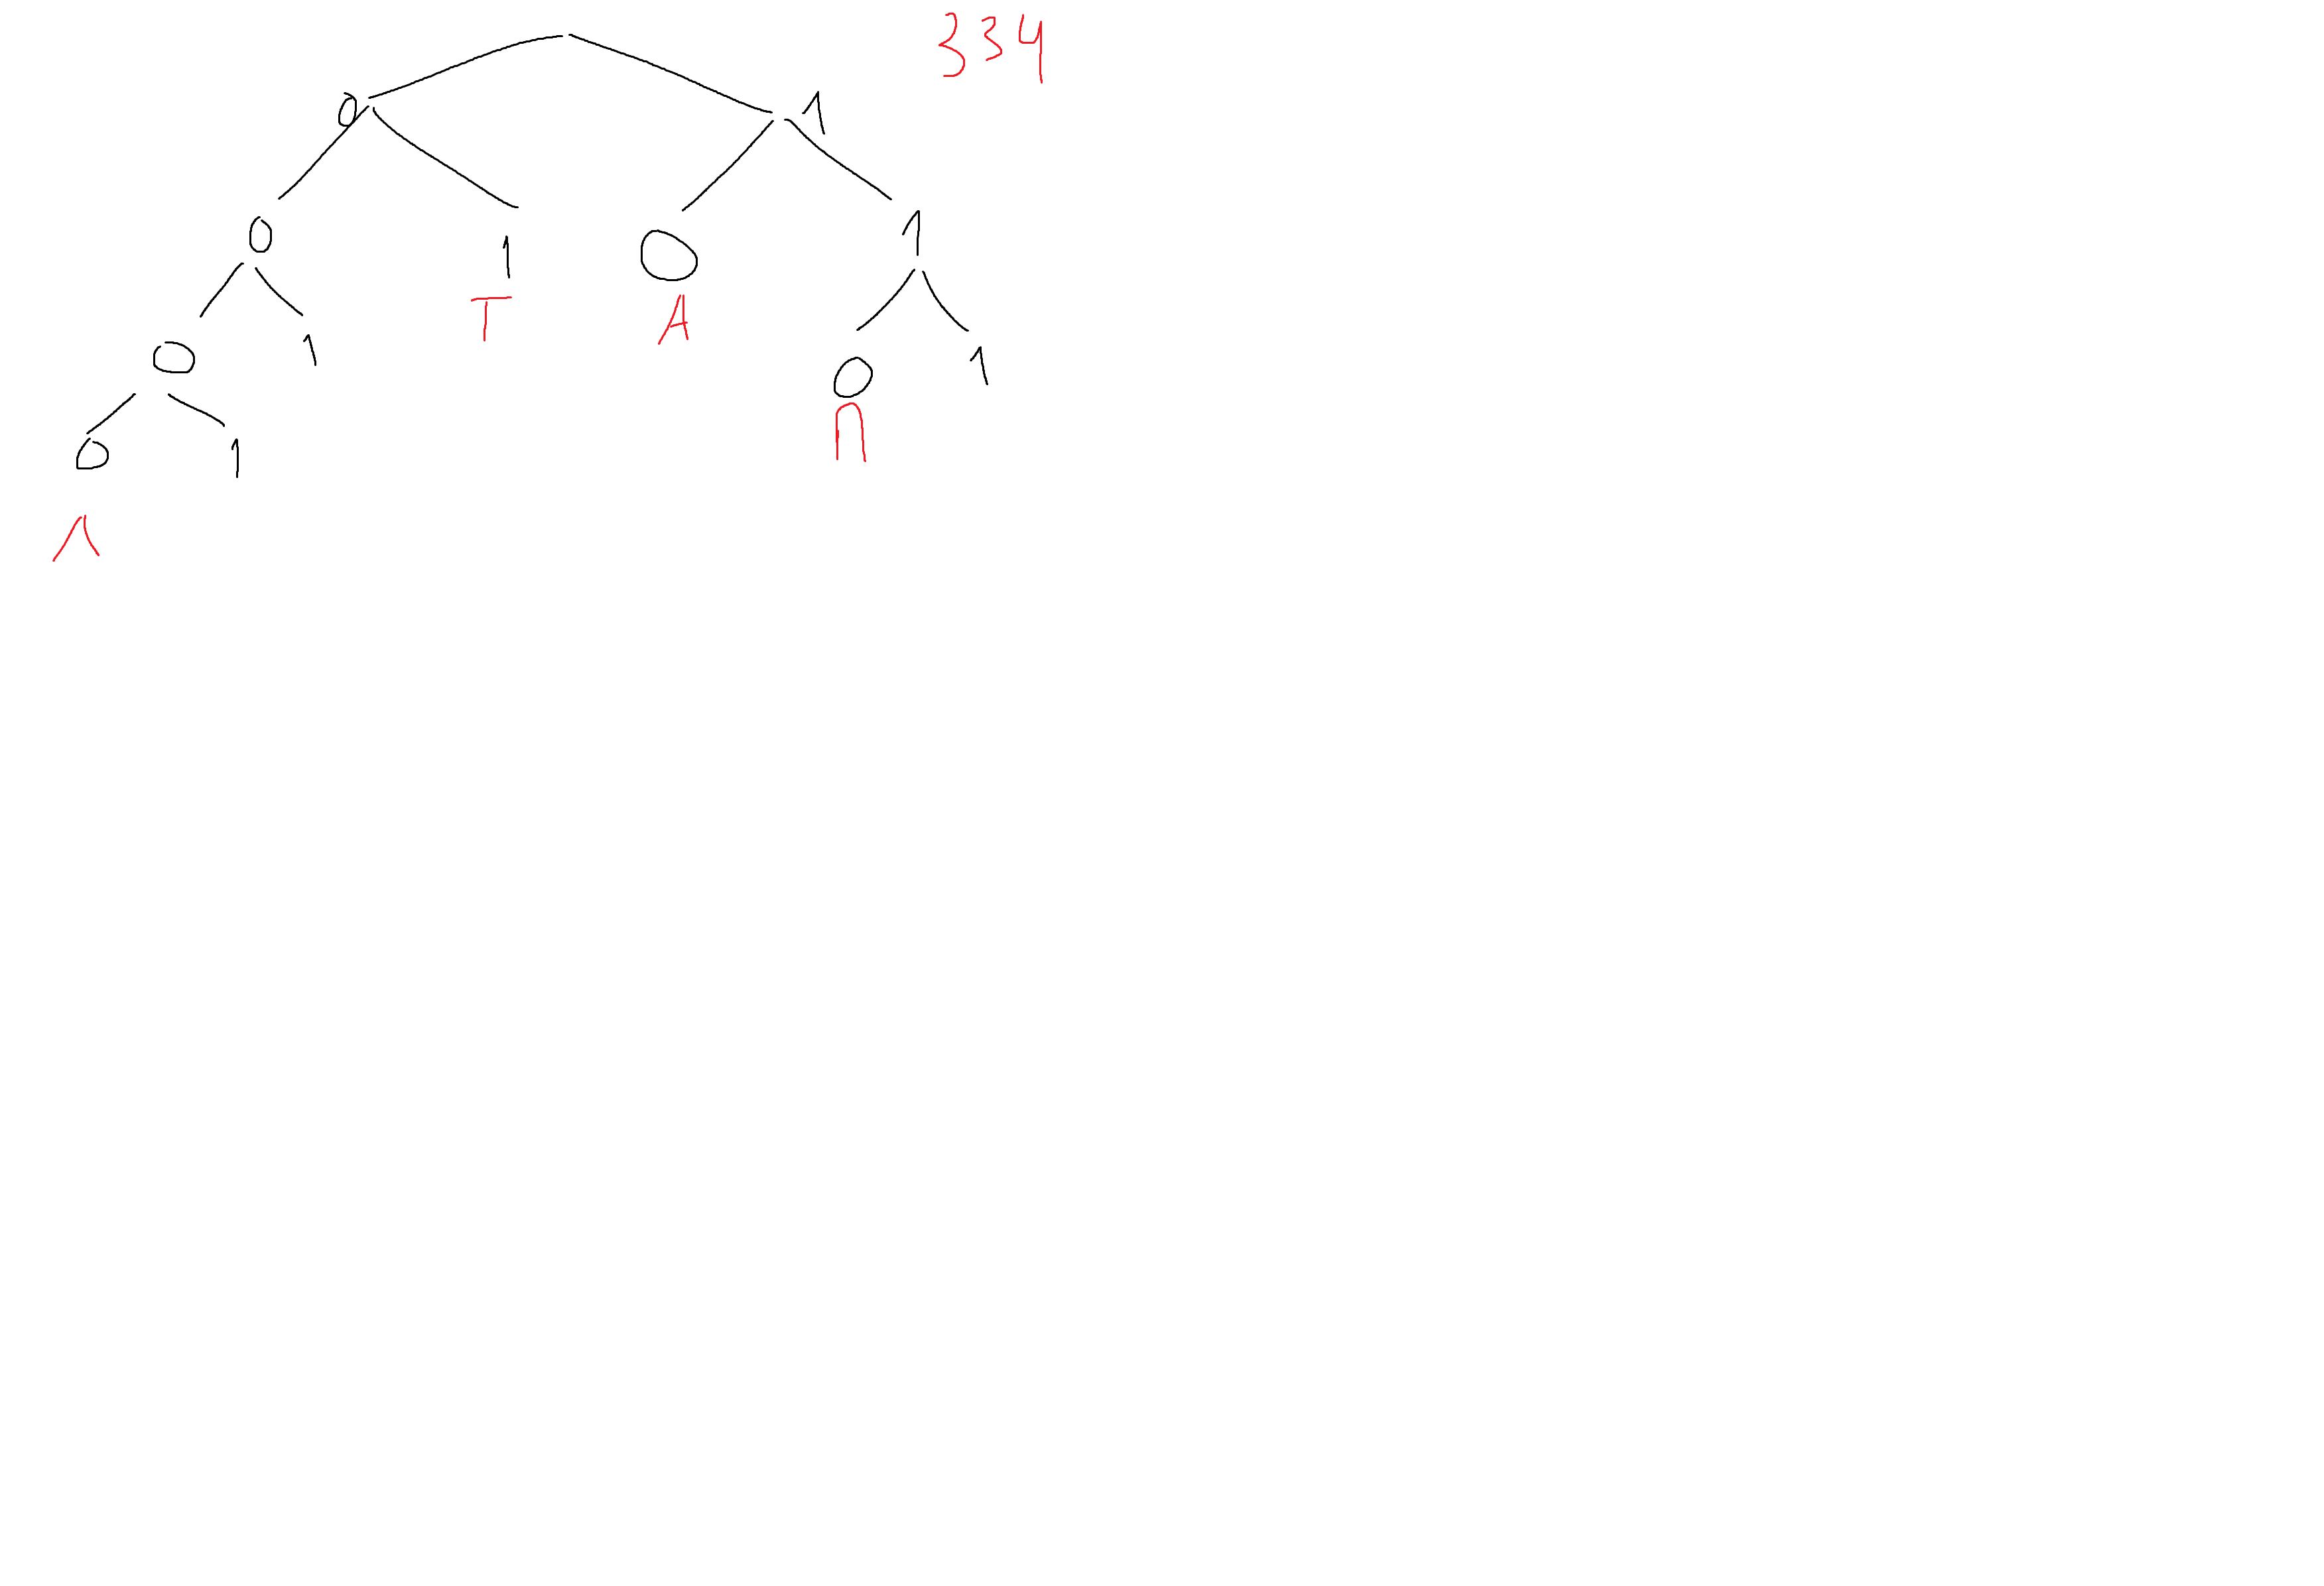 334
0 1
0 1 0 1
Т А
0 1 0 1
П
0 1
Л